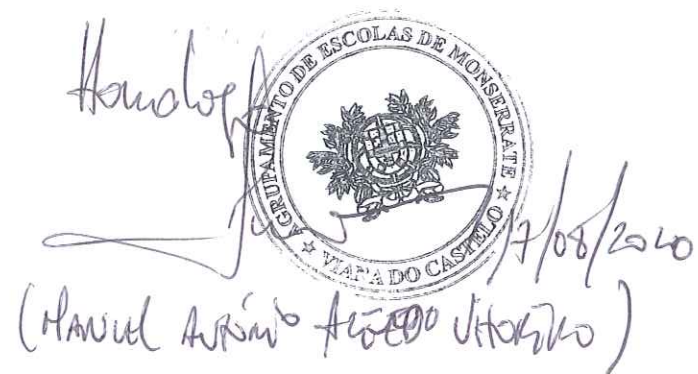 Homologo
AGRUPAMENTO DE ESCOLAS DE MONSERRATE
★ VIANA DO CASTELO ★
17/08/2020
(MANUEL ANTÓNIO AZEVEDO VITORINO)